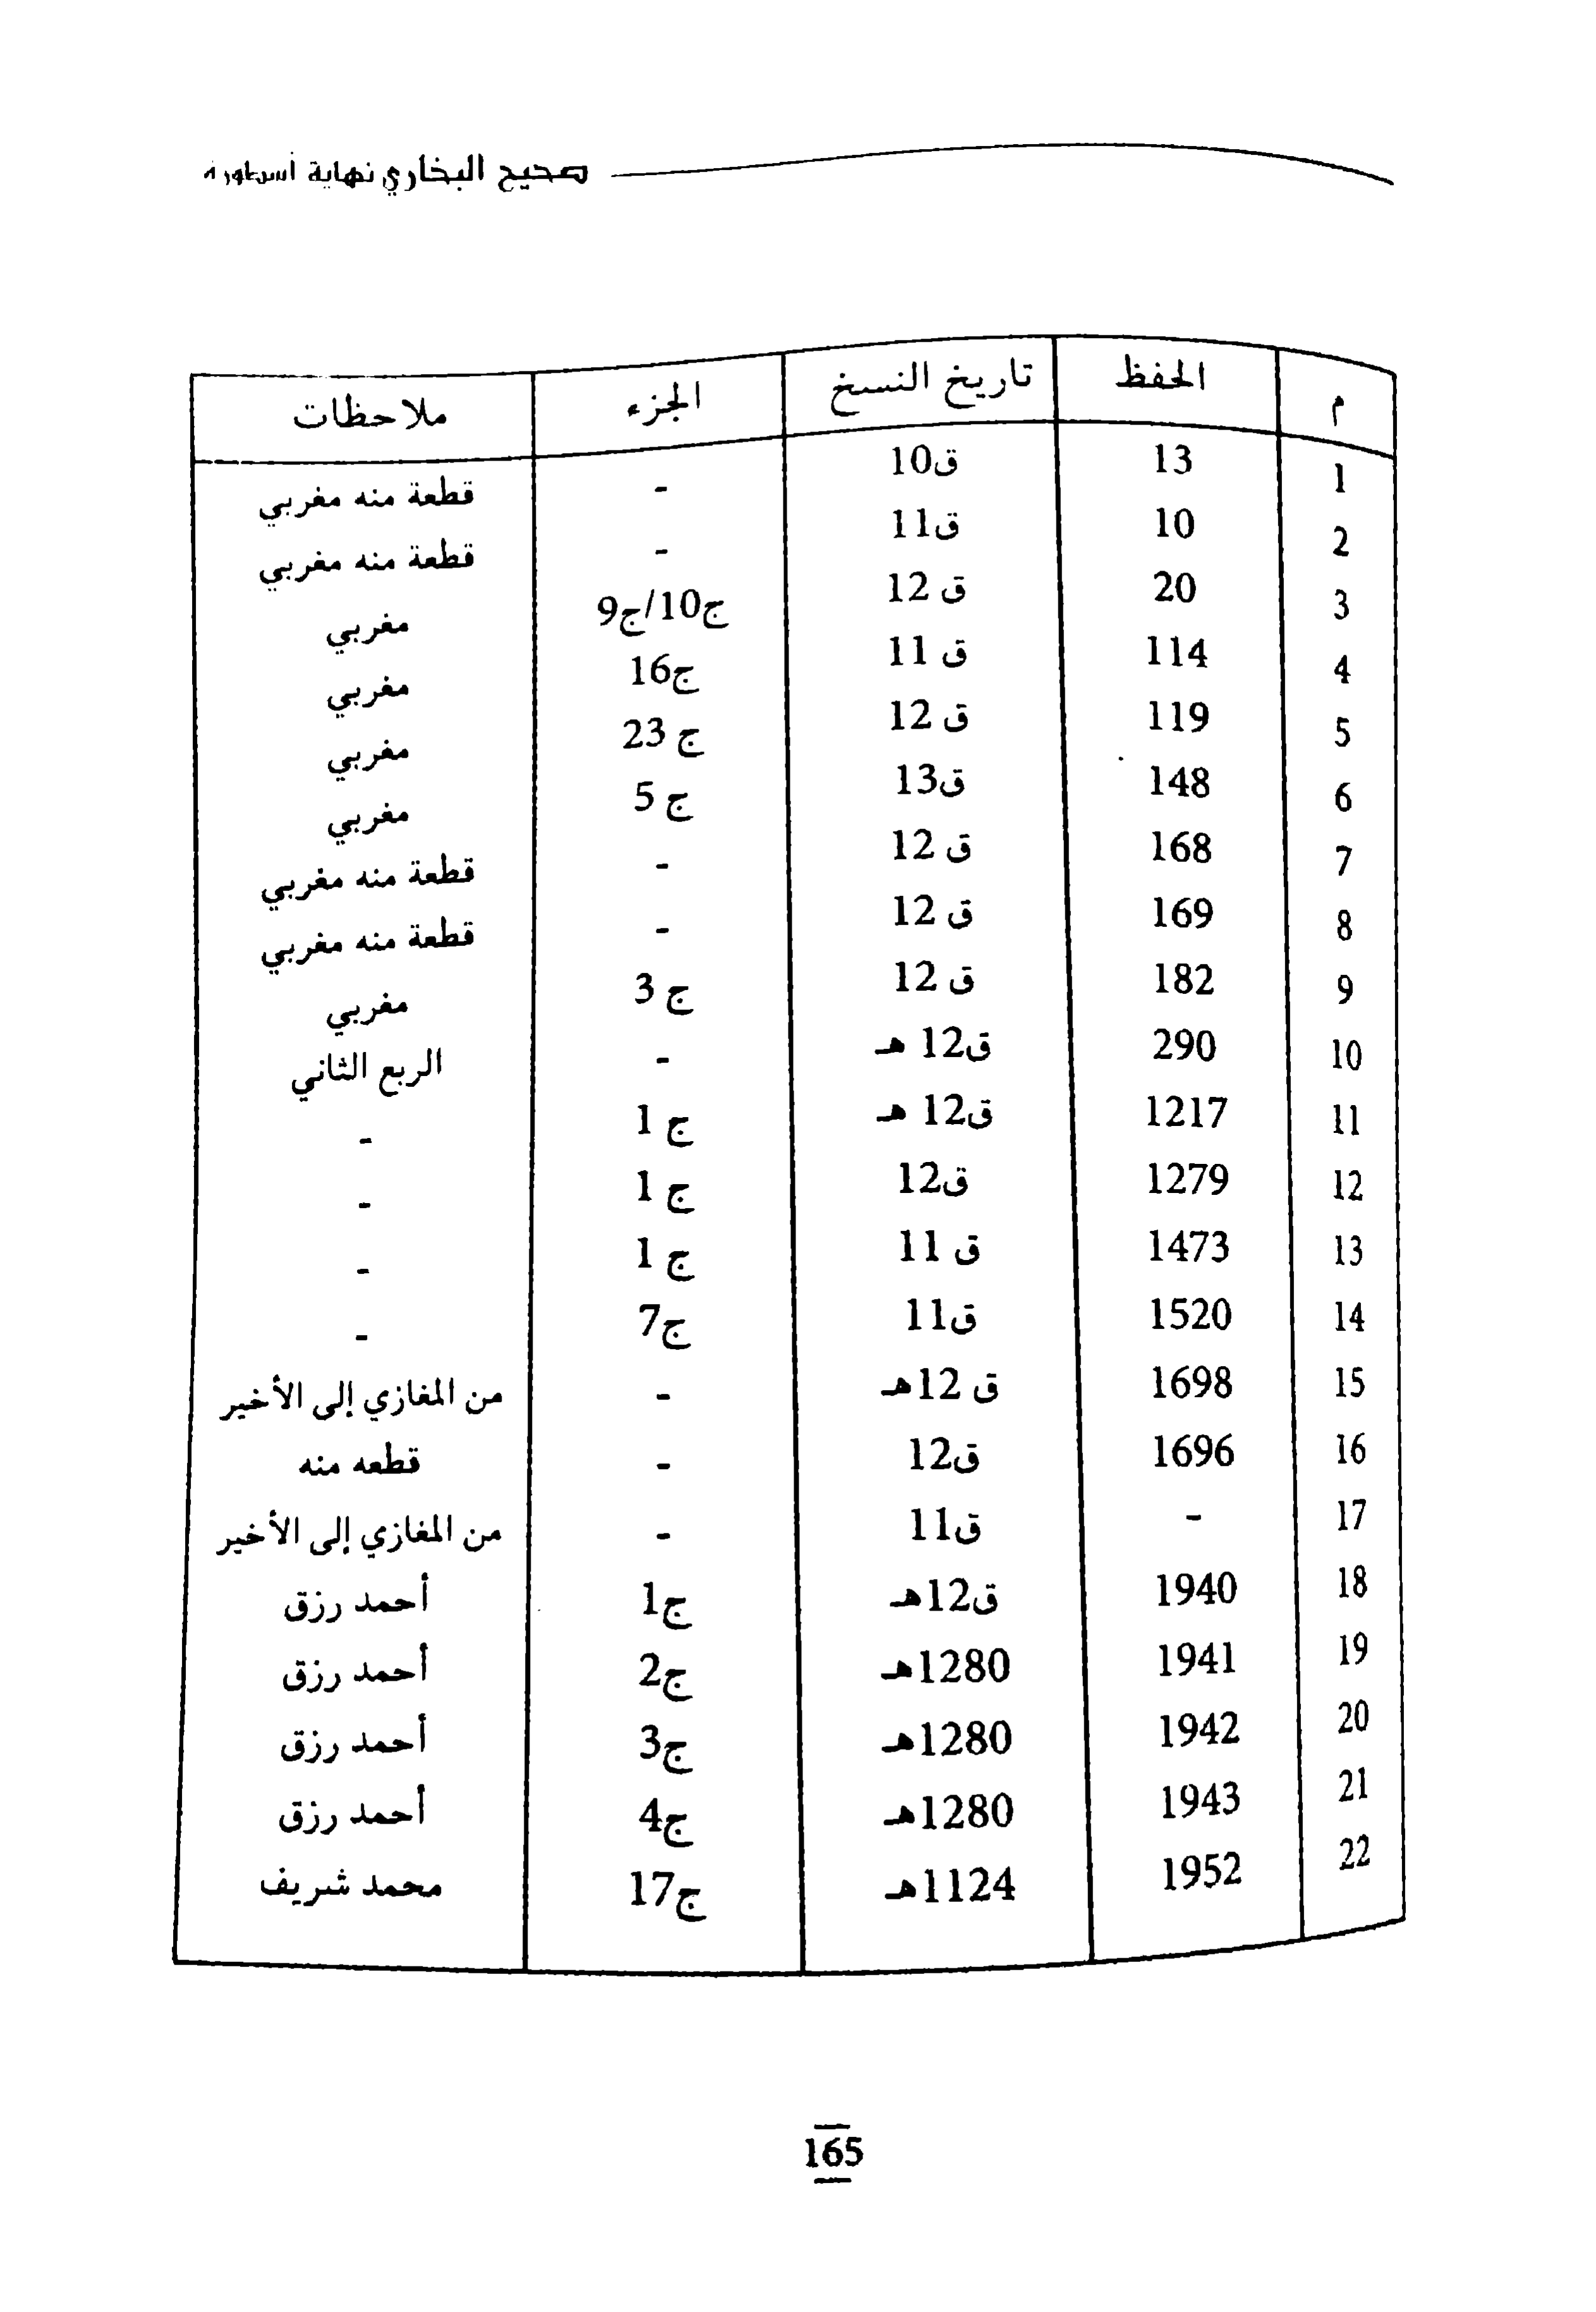 صحيح البخاري نهاية أسطورة
م الحفظ تاريخ النسخ الجزء ملاحظات
1 13 ق10 - قطعة منه مغربي
2 10 ق11 - قطعة منه مغربي
3 20 ق 12 ج10/ج9 مغربي
4 114 ق 11 ج16 مغربي
5 119 ق 12 ج 23 مغربي
6 148 ق13 ج 5 مغربي
7 168 ق 12 - قطعة منه مغربي
8 169 ق 12 - قطعة منه مغربي
9 182 ق 12 ج 3 مغربي
10 290 ق12 هـ - الربع الثاني
11 1217 ق12 هـ ج 1 -
12 1279 ق12 ج 1 -
13 1473 ق 11 ج 1 -
14 1520 ق11 ج7 -
15 1698 ق 12هـ - من المغازي إلى الأخير
16 1696 ق12 - قطعه منه
17 - ق11 - من المغازي إلى الأخير
18 1940 ق12هـ ج1 أحمد رزق
19 1941 1280هـ ج2 أحمد رزق
20 1942 1280هـ ج3 أحمد رزق
21 1943 1280هـ ج4 أحمد رزق
22 1952 1124هـ ج17 محمد شريف
165